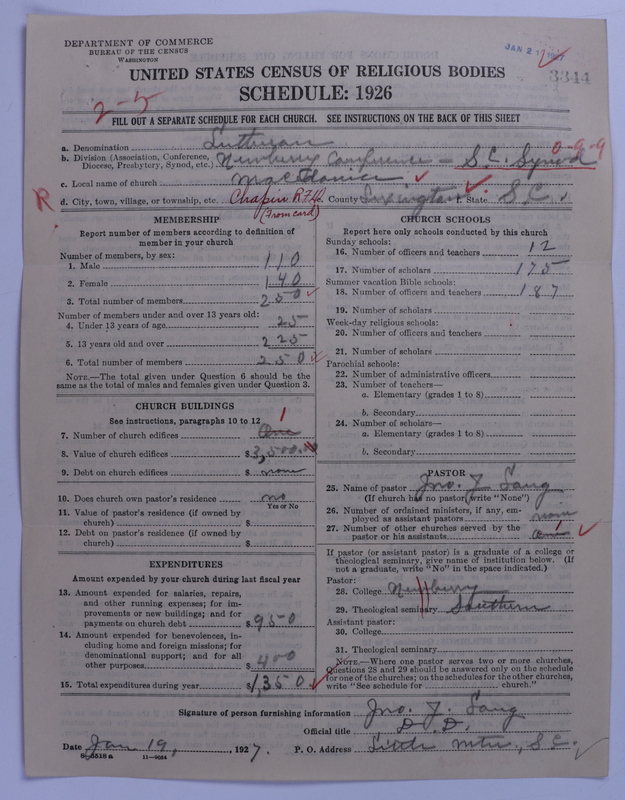 DEPARTMENT OF COMMERCE
BUREAU OF THE CENSUS
WASHINGTON
JAN 2 1927
3344
UNITED STATES CENSUS OF RELIGIOUS BODIES
SCHEDULE: 1926
2-5
FILL OUT A SEPARATE SCHEDULE FOR EACH CHURCH. SEE INSTRUCTIONS ON THE BACK OF THIS SHEET
a. Denomination Lutheran
b. Division (Association, Conference, Diocese, Presbytery, Synod, etc.) Newberry Conference - S.C. Synod 0-9-9
c. Local name of church Macedonia
R
d. City, town, village, or township, etc. Chapin R.F.D. County Lexington f. State S.C.
(From card)
MEMBERSHIP
Report number of members according to definition of
member in your church
Number of members, by sex:
1. Male 110
2. Female 140
3. Total number of members 250
Number of members under and over 13 years old:
4. Under 13 years of age 25
5. 13 years old and over 225
6. Total number of members 250
NOTE.—The total given under Question 6 should be the
same as the total of males and females given under Question 3.
CHURCH BUILDINGS
See instructions, paragraphs 10 to 12
7. Number of church edifices One 1
8. Value of church edifices $3,500.00
9. Debt on church edifices $ none
10. Does church own pastor's residence no
Yes or No
11. Value of pastor's residence (if owned by
church) $
12. Debt on pastor's residence (if owned by
church) $
EXPENDITURES
Amount expended by your church during last fiscal year
13. Amount expended for salaries, repairs,
and other running expenses; for im-
provements or new buildings; and for
payments on church debt $ 950
14. Amount expended for benevolences, in-
cluding home and foreign missions; for
denominational support; and for all
other purposes $ 400
15. Total expenditures during year $1,350
CHURCH SCHOOLS
Report here only schools conducted by this church
Sunday schools:
16. Number of officers and teachers 12
17. Number of scholars 175
Summer vacation Bible schools:
18. Number of officers and teachers 187
19. Number of scholars
Week-day religious schools:
20. Number of officers and teachers
21. Number of scholars
Parochial schools:
22. Number of administrative officers
23. Number of teachers—
a. Elementary (grades 1 to 8)
b. Secondary
24. Number of scholars—
a. Elementary (grades 1 to 8)
b. Secondary
PASTOR
25. Name of pastor Jno. J. Long
(If church has no pastor, write "None")
26. Number of ordained ministers, if any, em-
ployed as assistant pastors none
27. Number of other churches served by the
pastor or his assistants one 1
If pastor (or assistant pastor) is a graduate of a college or
theological seminary, give name of institution below. (If
not a graduate, write "No" in the space indicated.)
Pastor:
28. College Newberry
29. Theological seminary Southern
Assistant pastor:
30. College
31. Theological seminary
NOTE.—Where one pastor serves two or more churches,
Questions 28 and 29 should be answered only on the schedule
for one of the churches; on the schedules for the other churches,
write "See schedule for church."
Signature of person furnishing information Jno. J. Long
Official title D.D.
Date Jan 19, 1927. P. O. Address Little Mtn., S.C.
11-9034